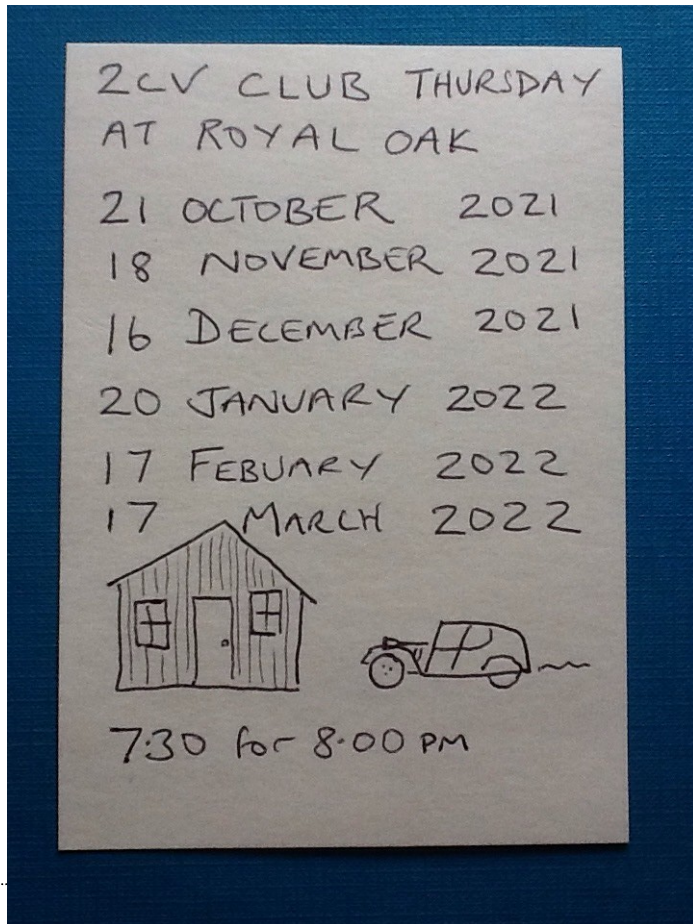 2CV CLUB THURSDAY
AT ROYAL OAK
21 OCTOBER 2021
18 NOVEMBER 2021
16 DECEMBER 2021
20 JANUARY 2022
17 FEBUARY 2022
17 MARCH 2022
7.30 for 8.00 PM